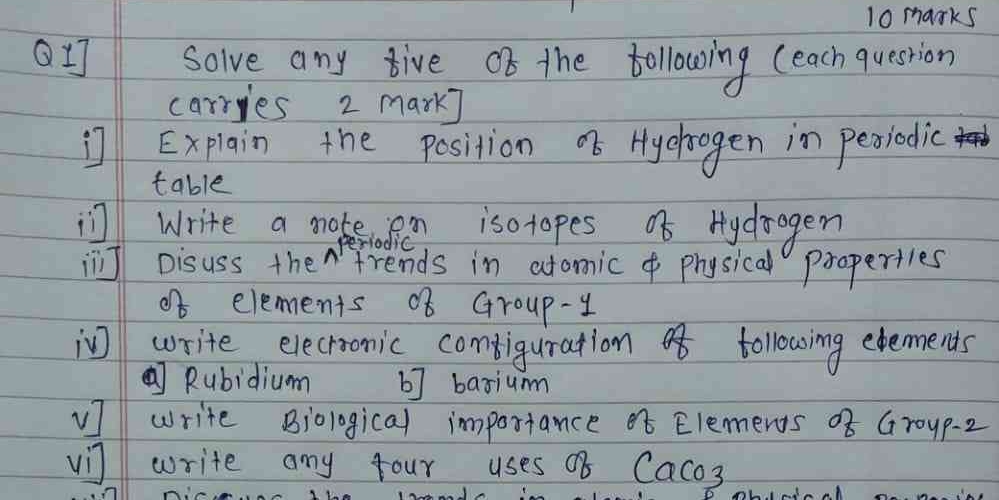 10 marks
Q1] Solve any five of the following (each question
carries 2 mark]
i] Explain the position of Hydrogen in periodic
table
ii] Write a note on isotopes of Hydrogen
iii] Disuss the periodic trends in atomic & physical properties
of elements of Group-1
iv] write electronic configuration of following elements
a] Rubidium b] barium
v] write Biological importance of Elements of Group-2
vi] write any four uses of CaCO3
the trends in & physical